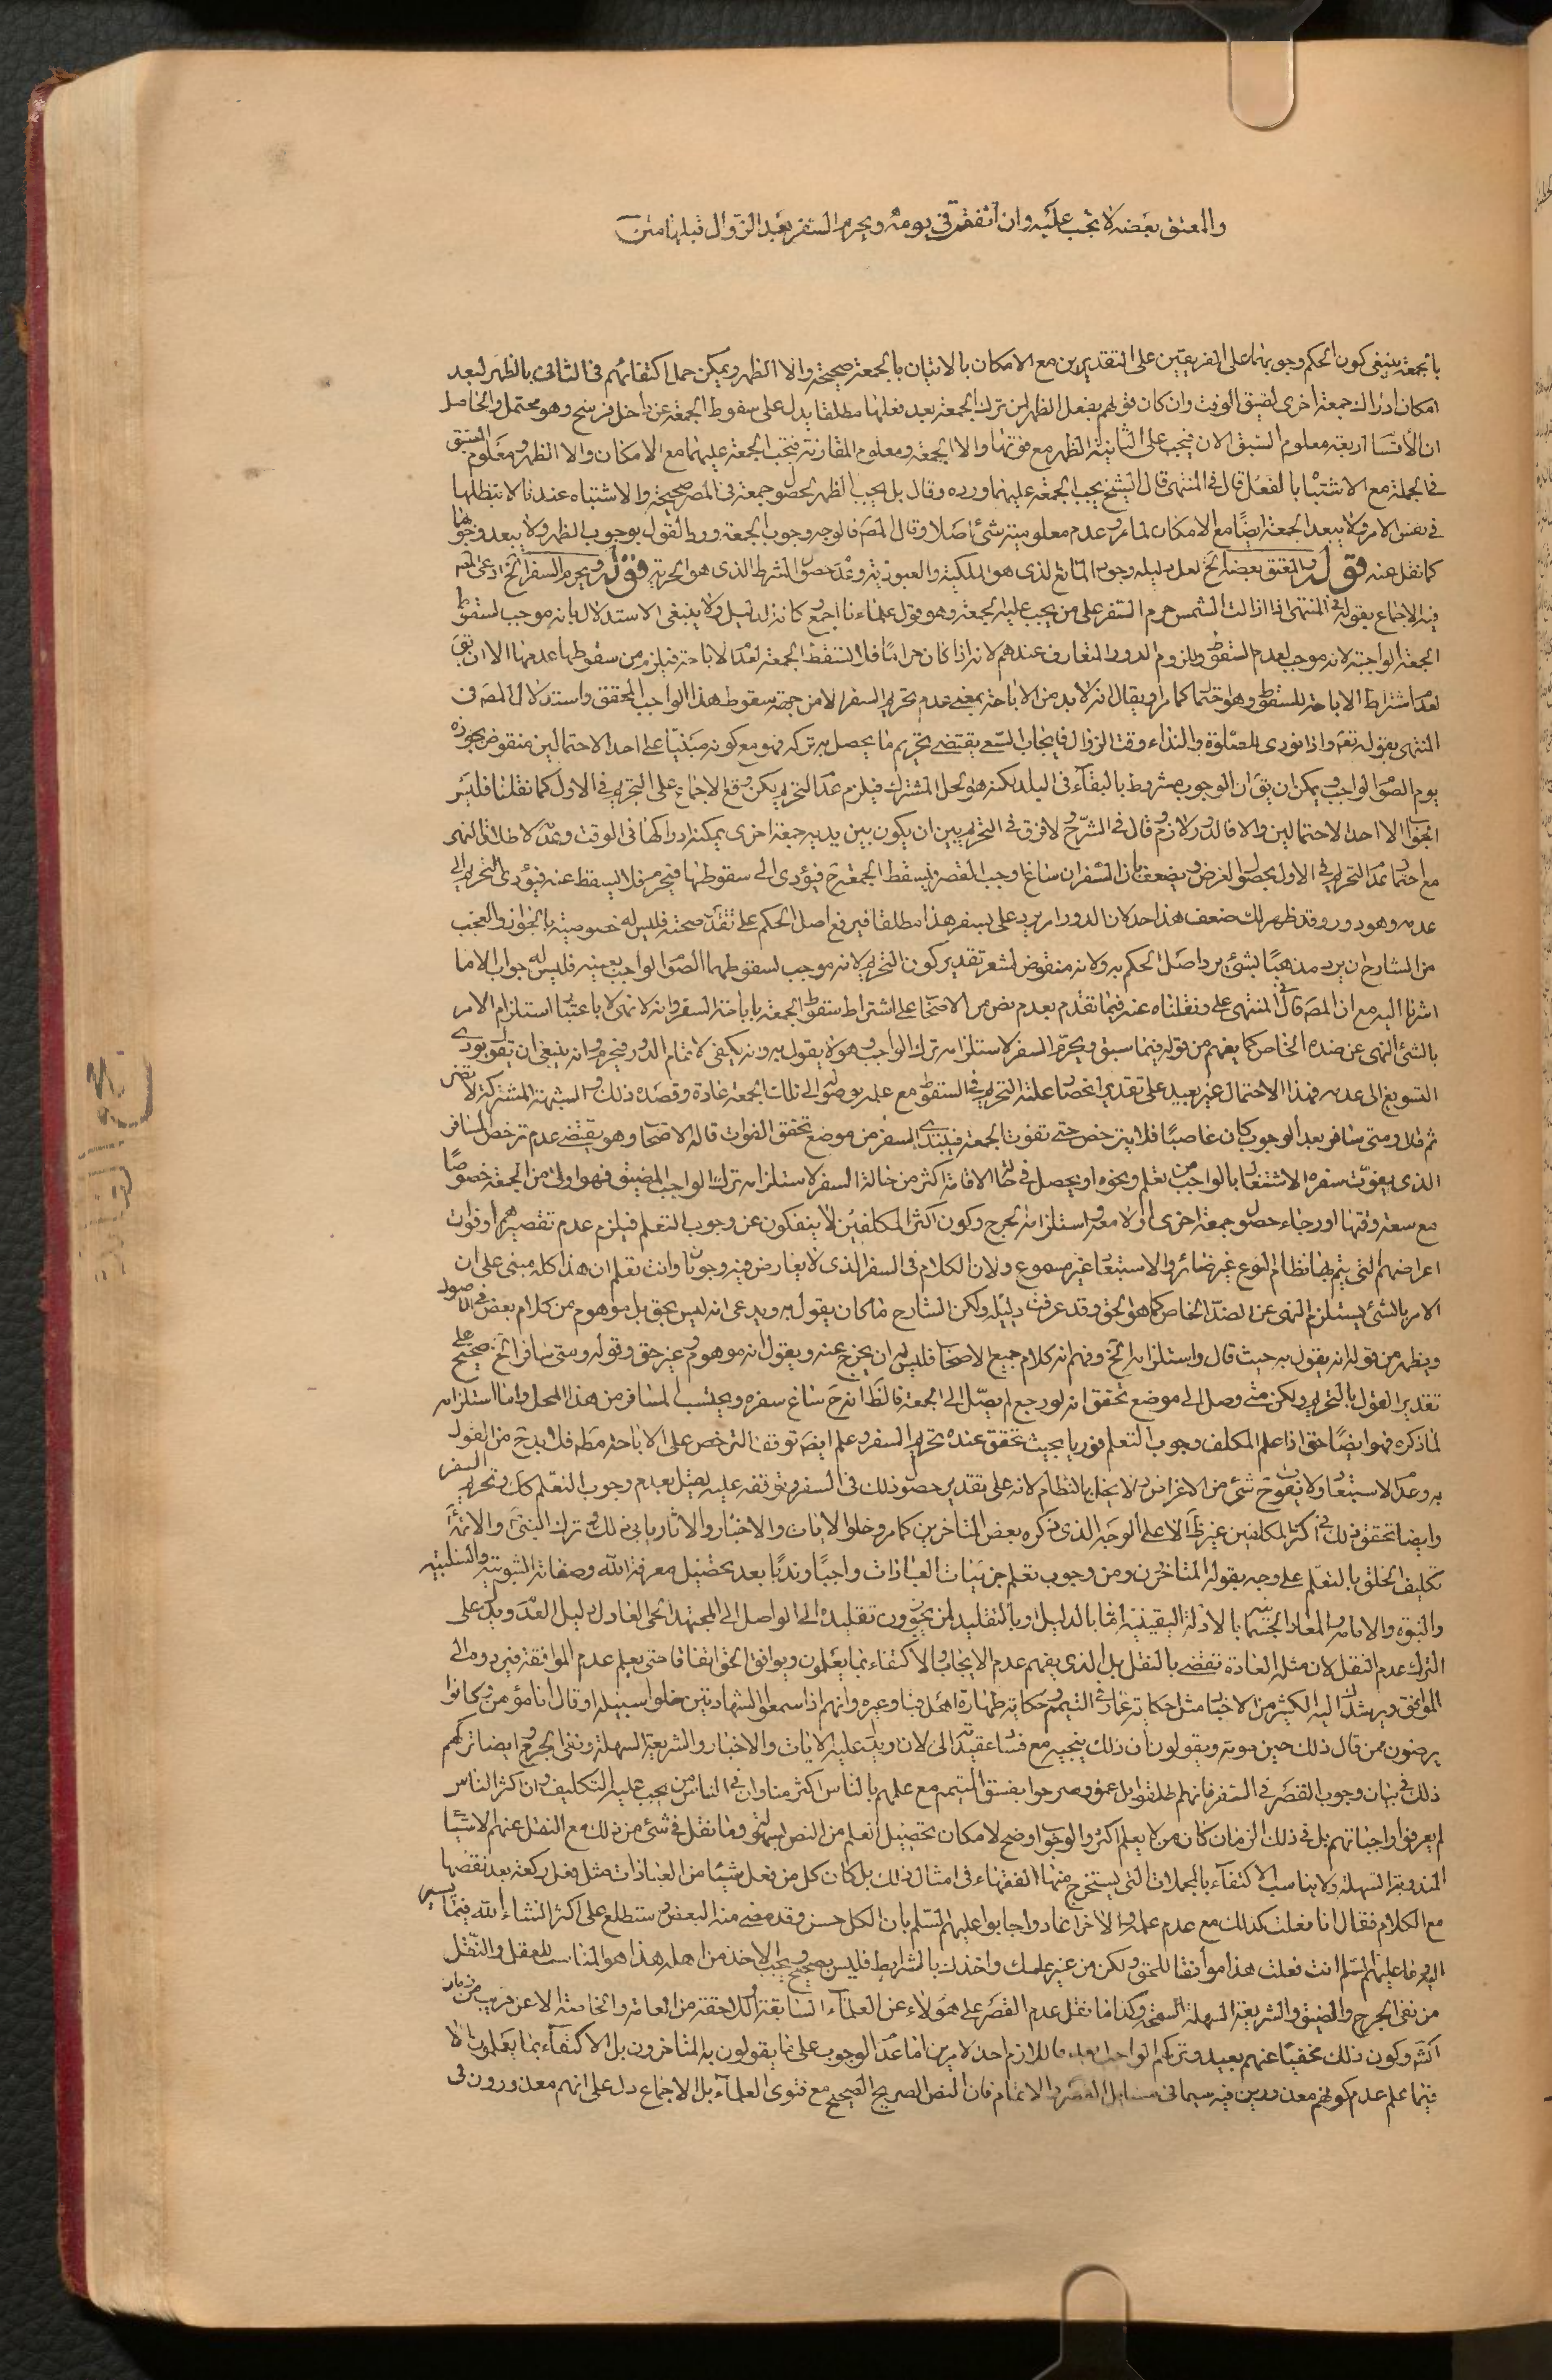 والمعتق بعضه لا تجب عليه وان اتفقت في يومه ويحرم السفر بعد الزوال قبلها متن
بالجمعة ينبغي كون الحكم وجوبهما على الفريقين على التقديرين مع الامكان بالاتيان بالجمعة صحيحة والا الظهر ويمكن حمل اكتفائهم في الثاني بالظهر لبعد
امكان ادراك جمعة اخرى لضيق الوقت وان كان قولهم بفعل الظهر لمن ترك الجمعة بعد فعلها مطلقا يدل على سقوط الجمعة عن داخل فرسخ وهو محتمل والحاصل
ان الأقسا اربعة معلوم السبق الان فيجب على الثانية الظهر مع فوتها والا الجمعة ومعلوم المقارنة فتجب الجمعة عليهما مع الامكان والا الظهر ومعلوم السبق
في الجملة مع الاشتبا بالفعل قال في المنتهى قال الشيخ يجب الجمعة عليهما ورده وقال بل يجب الظهر لحصول جمعة في المصر صحيحة والاشتباه عندنا لا تبطلها
في نفس الامر ولا يبعد الجمعة ايضا مع الامكان لما مر وعدم معلومية شئ اصلا وقال المص فالوجه وجوب الجمعة ورد القول بوجوب الظهر ولا يبعد وجوبها
كما نقل عنه قوله والمعتق بعضه الخ لعل دليله وجود المانع الذي هو الملكية والعبودية وعدم حصول الشرط الذي هو الحرية قوله ويحرم السفر الخ ادعى المص
فيه الاجماع بقوله في المنتهى اذا زالت الشمس حرم السفر على من يجب عليه الجمعة وهو قول علماءنا اجمع وكانه الدليل ولا ينبغي الاستدلال بانه موجب لسقوط
الجمعة الواجبة لانه موجب لعدم السقوط وللزوم الدور المتعارف عندهم لانه اذا كان حراما فلا تسقط الجمعة لعدم الاباحة فيلزم من سقوطها عدمها الا ان يق
لعدم اشتراط الاباحة للسقوط وهو حتما كما مر او يقال انه لا بد من الاباحة بمعنى عدم تحريم السفر لا من جهة سقوط هذا الواجب المحقق واستدلال المص في
المنتهى بقوله تعم واذا نودي للصلوة والنداء وقت الزوال فايجاب السعي يقتضي تحريم ما يحصل به تركه فهو مع كونه مبنيا على احد الاحتمالين منقوض بجوازه
يوم الصوم الواجب ويمكن ان يق ان الوجوب مشروط بالبقآء في البلد لكنه هو لحل المشترك فيلزم عدم التحريم لكن وقع الاجماع على التحريم في الاول كما نقلنا فليس
الجواب الا احد الاحتمالين والا فالدور لازم وقال في الشرح ولا فرق في التحريم بين ان يكون بين يديه جمعة اخرى يمكنه ادراكها في الوقت وعدمه لاطلاق النهى
مع احتمال عدم التحريم في الاول لحصول الغرض ويضعف بان السفر ان ساغ اوجب القصر فتسقط الجمعة ح فيؤدي الى سقوطها فيحرم فلا يسقط عنه فيؤدي التحريم الى
عدمه وهو دور وقد ظهر لك ضعف هذا
من الشارح ان يرد مذهبا بشئ يرد اصل الحكم به ولانه منقوض
اشرنا اليه مع ان المص قال في المنتهى على ونقلناه عنه فيما تقدم بعدم نص من الاصحاب على اشتراط سقوط الجمعة باباحة السفر وانه لا نهى الا باعتبار استلزام الامر
بالشئ النهى عن ضده الخاص كما يفهم من قوله فيما سبق ويحرم السفر لاستلزامه ترك الواجب وهو لا يقول به
التسويغ الى عدمه فهذا الاحتمال غير بعيد على تقدير انحصار علة التحريم في السقوط مع علمه بوصوله الى تلك الجمعة عادة وقصده ذلك
ثم قال ومتى سافر بعد الوجوب كان عاصيا فلا يترخص حتى تفوت الجمعة فيبتدئ السفر من موضع تحقق الفوات قاله الاصحاب وهو يقتضي عدم ترخص المسافر
الذي يفوت سفره الاشتغال بالواجب من تعلم ونحوه او يحصل في حال الاقامة اكثر من حالة السفر لاستلزامه ترك الواجب المضيق فهو اولى من الجمعة خصوصا
مع سعة وقتها او رجاء حصول جمعة اخرى اولا معه واستلزامه الحرج وكون اكثر المكلفين لا ينفكون عن وجوب التعلم فيلزم عدم تقصيرهم او فوات
اغراضهم التي يتم بها نظام النوع غير ضائر والاستبعاد غير مسموع ولان الكلام في السفر الذي لا يعارض فيه وجوبان وانت تعلم ان هذا كله مبني على ان
الامر بالشئ يستلزم النهى عن الضد الخاص كما هو الحق وقد عرفت دليله ولكن الشارح ما كان يقول به ويدعي انه ليس بحق بل موهوم من كلام بعض في الاصول
ويظهر من قوله انه يقول به حيث قال واستلزامه الخ وفهم انه كلام جميع الاصحاب فليس له ان يخرج عنه ويقول انه موهوم وغير حق وقوله ومتى سافر الخ صحيح على
تقدير القول بالتحريم ولكن متى وصل الى موضع تحقق انه لو رجع لم يصل الى الجمعة فالظ انه ح ساغ سفره ويحتسب المسافر من هذا المحل واما استلزامه
لما ذكره فهو ايضا حق اذا علم المكلف وجوب التعلم فوريا بحيث تحقق عنده تحريم السفر وعلم ايضا توقف الترخص على الاباحة مط فلا بد ح من القول
به وعدم الاستبعاد ولا يفوت ح شئ من الاغراض ولا يخل بالنظام لانه على تقدير حصول ذلك في السفر وتوقفه عليه
وايضا تحقق ذلك في اكثر المكلفين غير ظ الا على الوجه الذي ذكره بعض المتاخرين كما مر وخلو الايات والاخبار والاثار يابى ذلك
تكليف الخلق بالتعلم على وجه يقوله المتاخرون ومن وجوب تعلم جزئيات العبادات واجبا وندبا بعد تحصيل معرفة الله وصفاته الثبوتية والسلبية
والنبوة والامامة والمعاد الجسماني بالادلة اليقينية اما بالدليل او بالتقليد لمن يجوزون تقليده الى الواصل الى المجتهد الحي العادل بدليل العدم ويدل على
الترك عدم النقل لان مثله العادة تقضي بالنقل بل الذي يفهم عدم الايجاب والاكتفاء بما يعلمون ويوافق الحق اتفاقا حتى يعلم عدم الموافقة فيردوه الى
الموافق ويرشد اليه الكثير من الاخبار مثل حكاية عمار في التيمم وحكاية طهارة اهل قبا وغيره وانهم اذا سمعوا الشهادتين خلوا سبيله او قال انا مؤمن وكانوا
يرضون ممن قال ذلك حين موته ويقولون ان ذلك ينجيه مع فساد عقيدته الى الان ويدل عليه الايات والاخبار والشريعة السهلة ونفي الحرج وايضا تركهم
ذلك في بيان وجوب القصر في السفر فانهم
لم يعرفوا واجباتهم بل في ذلك الزمان كان من لا يعلم اكثر والوجوب اوضح لامكان تحصيل العلم من النص
المندوبة السهلة ولا يناسب الاكتفآء بالمجملات التي يستخرج منها الفقهاء في امثال ذلك بل كان كل من فعل شيئا من العبادات مثل فعل ركعة بعد نقضها
مع الكلام فقال انا فعلت كذلك مع عدم علمه والاخر اعاد واجابوا عليهم السلم بان الكل حسن وقد مضى منه البعض وستطلع على اكثر انشاء الله فيما
انت فعلت هذا موافقا للحق ولكن من غير علمك واخذك بالشرايط فليس بصحيح ويجب الاخذ من اهله هذا هو المناسب للعقل والنقل
من نفي الحرج والضيق والشريعة السهلة السمحة وكذا ما نقل عدم القصر على هؤلاء عن العلمآء السابقة
اكثر وكون ذلك مخفيا عنهم بعيد وتركهم الواجب بعيد فاللازم احد الامرين اما عدم الوجوب على ما يقولون به المتاخرون بل الاكتفاء بما يعلمون والا
فيما علم عدم كونهم معذورين فيه سيما في مسايل القصر والاتمام فان النص الصريح الصحيح مع فتوى العلمآء بل الاجماع دل على انهم معذورون في